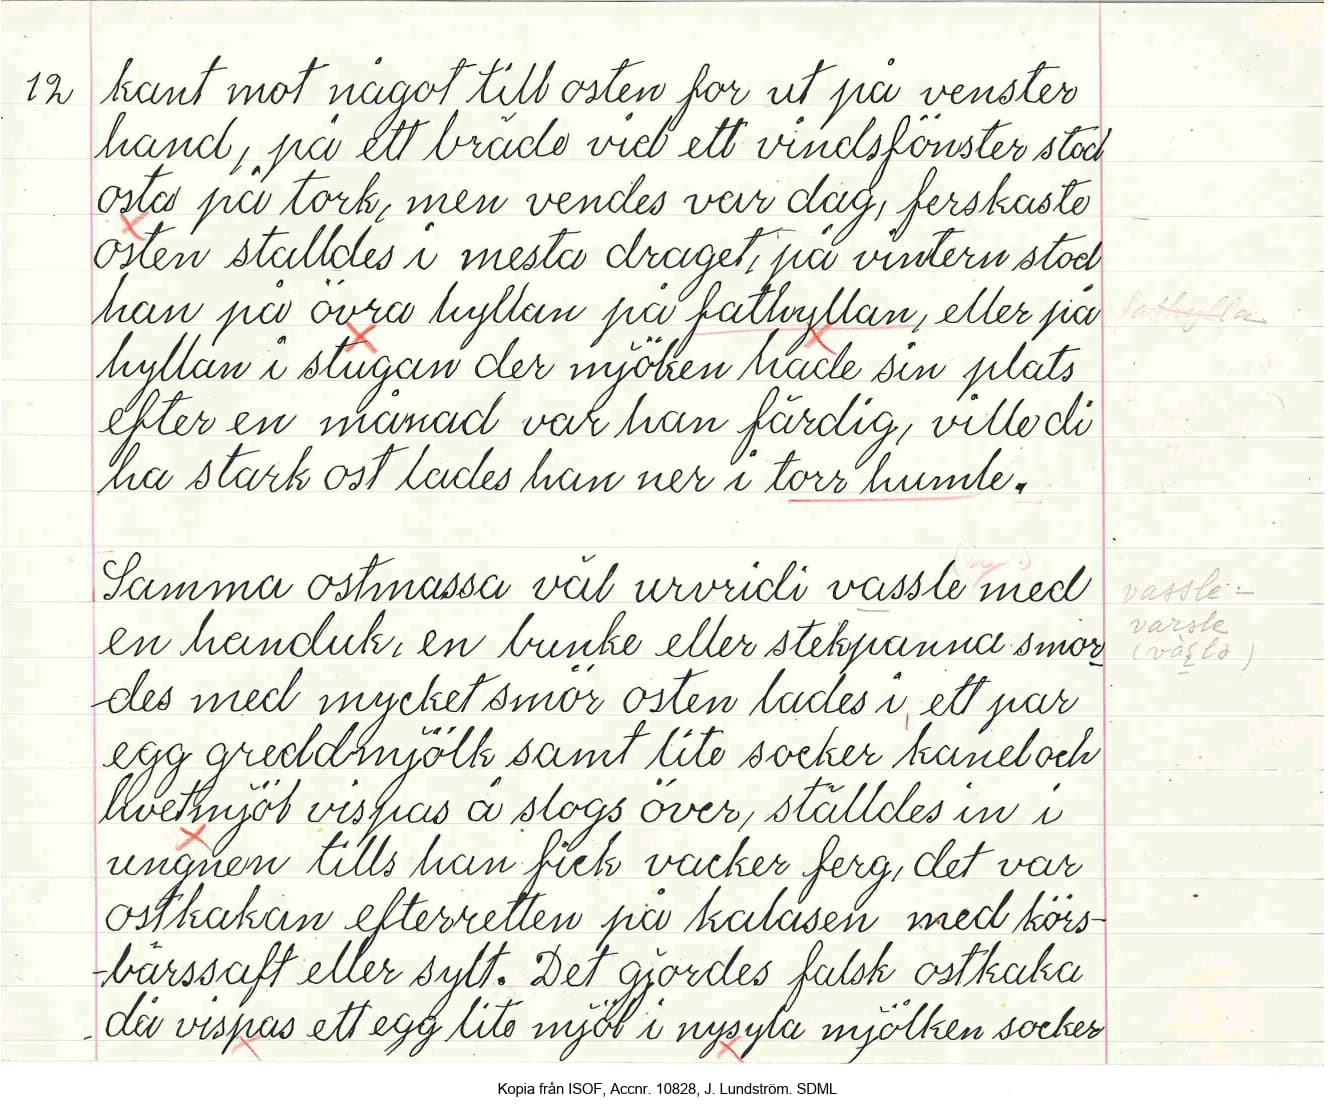 12 kant mot något till osten for ut på venster
hand, på ett bräde vid ett vindsfönster stod
osta på tork, men vendes var dag, ferskaste
osten stalldes i mesta draget, på vintern stod
han på övra hyllan på fathyllan, eller på
fathylla
hyllan i stugan der mjöken hade sin plats
efter en månad var han färdig, ville di
ha stark ost lades han ner i torr humle.
Samma ostmassa väl urvridi vassle med
vassle -
en handuk, en bunke eller stekpanna smor
varsle
-des med mycket smör osten lades i, ett par
egg greddmjölk samt lite socker kanel och
hvetmjöl vispas å slogs över, ställdes in i
ungnen tills han fick vacker ferg, det var
ostkakan efterretten på kalasen med körs-
-bärssaft eller sylt. Det gjordes falsk ostkaka
-då vispas ett egg lite mjöl i nysyla mjölken socker
Kopia från ISOF, Accnr. 10828, J. Lundström. SDML